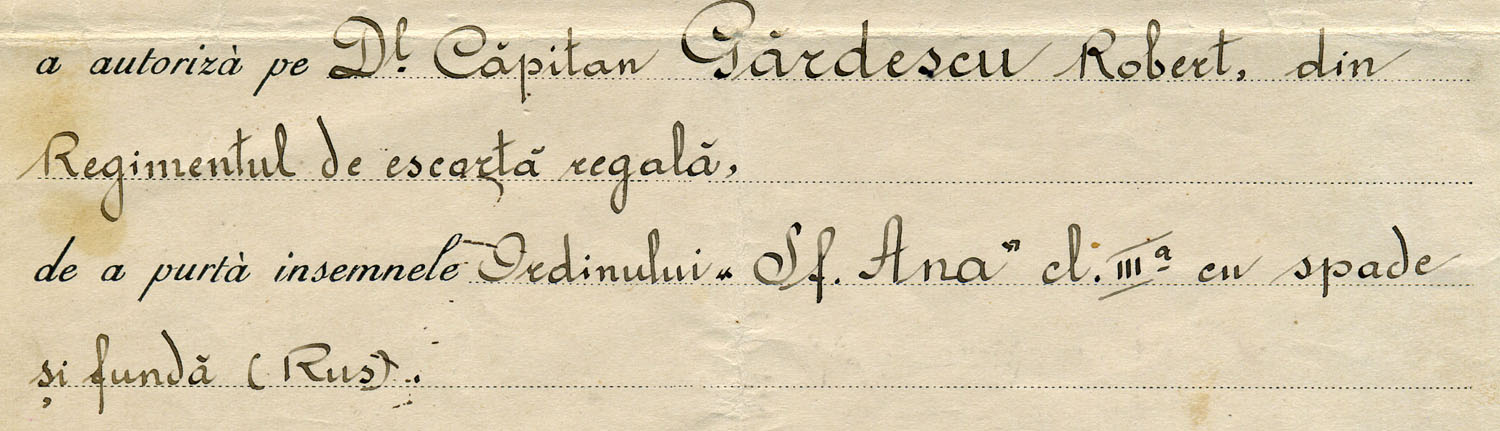 a autorizà pe Dl. Căpitan Gărdescu Robert, din
Regimentul de escortă regală,
de a purtà insemnele Ordinului „Sf. Ana” cl. IIIa cu spade
și fundă (Rus).